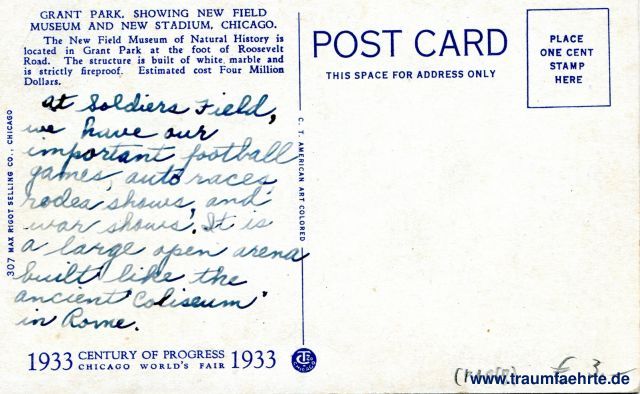 GRANT PARK, SHOWING NEW FIELD
MUSEUM AND NEW STADIUM, CHICAGO.
The New Field Museum of Natural History is
located in Grant Park at the foot of Roosevelt
Road. The structure is built of white marble and
is strictly fireproof. Estimated cost Four Million
Dollars.
at Soldiers Field,
we have our
important football
games, auto races,
rodea shows, and
war shows. It is
a large open arena
built like the
ancient "Coliseum"
in Rome.
307 MAX RIGOT SELLING CO., CHICAGO
1933 CENTURY OF PROGRESS 1933
CHICAGO WORLD'S FAIR
C. T. AMERICAN ART COLORED
POST CARD
THIS SPACE FOR ADDRESS ONLY
PLACE
ONE CENT
STAMP
HERE
€ 3.-
www.traumfaehrte.de